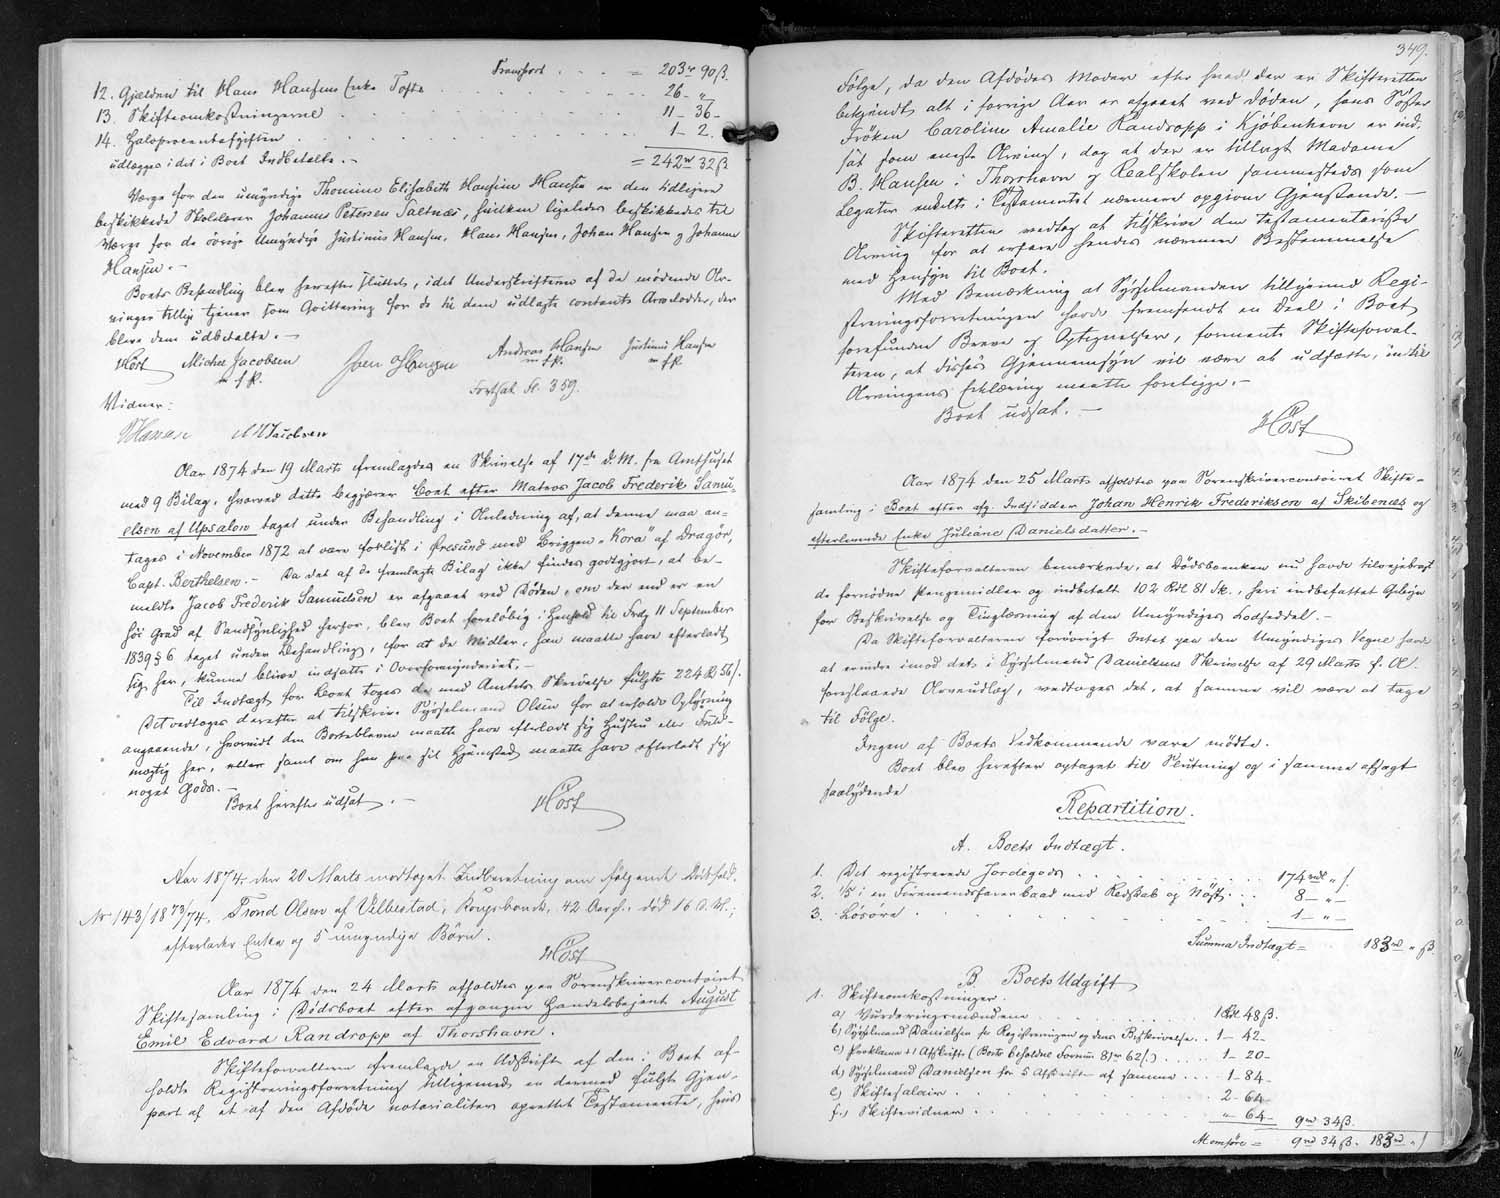 Transport . . . = 203 rd 90 ß.
12. Gjælden til Hans Hansens Enke Tofte . . . 26 - "
13. Skifteomkostningerne . . . 11 - 36 -
14. Halvprocentafgiften . . . 1 - 2.
udlægges i det i Boet Indbetalte. - = 242 rd 32 ß
Værge for den umyndige Thomine Elisabeth Hansine Hansen er den tidligere
beskikkede Skolelærer Johannes Petersen Saltnæs, hvilken ligeledes beskikkedes til
Værge for de övrige Umyndige Justinus Hansen, Hans Hansen, Johan Hansen og Johanne
Hansen. -
Boets Behandling blev herefter sluttet, idet Underskrifterne af de mødende Ar-
vinger tillige tjener som Qvittering for de til dem udlagte contante Arvelodder, der
bleve dem udbetalte. -
Höst Michel Jacobsen Joen Hansen Andreas Hansen Justinus Hansen
m. f. P. m. f. P. m. f. P.
Fortsat Fl. 359.
Vidner:
Hansen M Jacobsen
Aar 1874 den 19 Marts fremlagdes en Skrivelse af 17de d. M. fra Amthuset
med 9 Bilag, hvorved dette begjærer Boet efter Matros Jacob Frederik Samu-
elsen af Upsalon taget under Behandling i Anledning af, at denne maa an-
tages i November 1872 at være forlist i Øresund med Briggen "Kora" af Dragör,
Capt. Berthelsen. - Da det af de fremlagte Bilag ikke findes godtgjort, at be-
meldte Jacob Frederik Samuelsen er afgaaet ved Døden, om der end er en
höi Grad af Sandsynlighed herfor, blev Boet foreløbig i Henhold til Frdg 11 September
1839 § 6 taget under Behandling, for at de Midler, han maatte have efterladt
sig her, kunne blive indsatte i Overformynderiet. -
Til Indtægt for Boet toges de med Amtets Skrivelse fulgte 224 Rd 56 ß.
Det vedtoges derefter at tilskrive Sysselmand Olsen for at erholde Oplysning
angaaende, hvorvidt den Bortblevne maatte have efterladt sig Hustru eller
her, eller samt om han paa sit Hjemsted maatte have efterladt sig
noget Gods. -
Boet herefter udsat. -
Höst
Aar 1874, den 20 Marts modtoges Indberetning om følgende Dødsfald.
No 143/1873/74. Trond Olsen af Velbestad, Kongsbonde, 42 Aar gl. død 16 d. M.;
efterlader Enke og 5 umyndige Børn.
Höst
Aar 1874 den 24 Marts afholdtes paa Sorenskrivercontoiret
Skiftesamling i Dødsboet efter afgangne Handelsbetjent August
Emil Edvard Randropp af Thorshavn.
Skifteforvalteren fremlagde en Udskrift af den i Boet af-
holdte Registreringsforretning tilligemed en dermed fulgt Gjen-
part af et af den Afdøde notorialiter oprettet Testamente, hvis
349.
Følge, da den Afdødes Moder efter hvad der er Skifteretten
bekjendt alt i forrige Aar er afgaaet ved døden, hans Søster
Frøken Caroline Amalie Randropp i Kjøbenhavn er ind-
sat som eneste Arving, dog at der er tillagt Madame
B. Hansen i Thorshavn og Realskolen sammesteds som
Legater enkelte i Testamentet nærmere opgivne Gjenstande. -
Skifteretten vedtog at tilskrive den testamentariske
Arving for at erfare hendes nærmere Bestemmelse
med Hensyn til Boet.
Med Bemærkning at Sysselmanden tilligemed Regi-
streringsforretningen havde fremsendt en Deel i Boet
forefundne Breve og Optegnelser, formente Skifteforval-
teren, at disses Gjennemsyn vil være at udsætte, indtil
Arvingens Erklæring maatte foreligge. -
Boet udsat. -
Höst
Aar 1874 den 25 Marts afholdtes paa Sorenskrivercontoiret Skifte-
samling i Boet efter afg. Indsidder Johan Henrik Frederiksen af Skibenæs og
efterlevende Enke Juliane Danielsdatter. -
Skifteforvalteren bemærkede, at Dødsboenken nu havde tilveiebragt
de fornødne Pengemidler og indbetalt 102 Rdl 81 Sk., heri indbefattet Gebyr
for Beskrivelse og Tinglæsning af den Umyndiges Lodseddel. -
Da Skifteforvalteren forøvrigt Intet paa den Umyndiges Vegne havde
at erindre imod det i Sysselmand Danielsens Skrivelse af 29 Marts f. A.
foreslaaede Arveudlæg, vedtoges det, at samme vil være at tage
til Følge.
Ingen af Boets Vedkommende vare mødte.
Boet blev herefter optaget til Slutning og i samme afsagt
saalydende
Repartition.
A. Boets Indtægt.
1. Det registrerede Jordegods . . . 174 rdl " ß.
2. 1/5 i en Sexmandsfarerbaad med Redskab og Nöst . . . 8 - " -
3. Lösöre . . . 1 - " -
Summa Indtægt = 183 rd " ß.
B. Boets Udgift
1. Skifteomkostninger.
a) Vurderingsmændene . . . 1 Rdl 48 ß.
b) Sysselmand Danielsen for Registreringen og dens Beskrivelse . . 1 - 42 -
c) Proklama + 1 Afskrift (Boets beholdne Formue 81 rd 62 ß.) . . . 1 - 20 -
d) Sysselmand Danielsen for 5 Afskrifter af samme . . . 1 - 84 -
e) Skiftesalair . . . 2 - 64 -
f.) Skiftevidner . . . " - 64 - 9 rd 34 ß.
At overføre = 9 rd 34 ß. 183 rd " ß